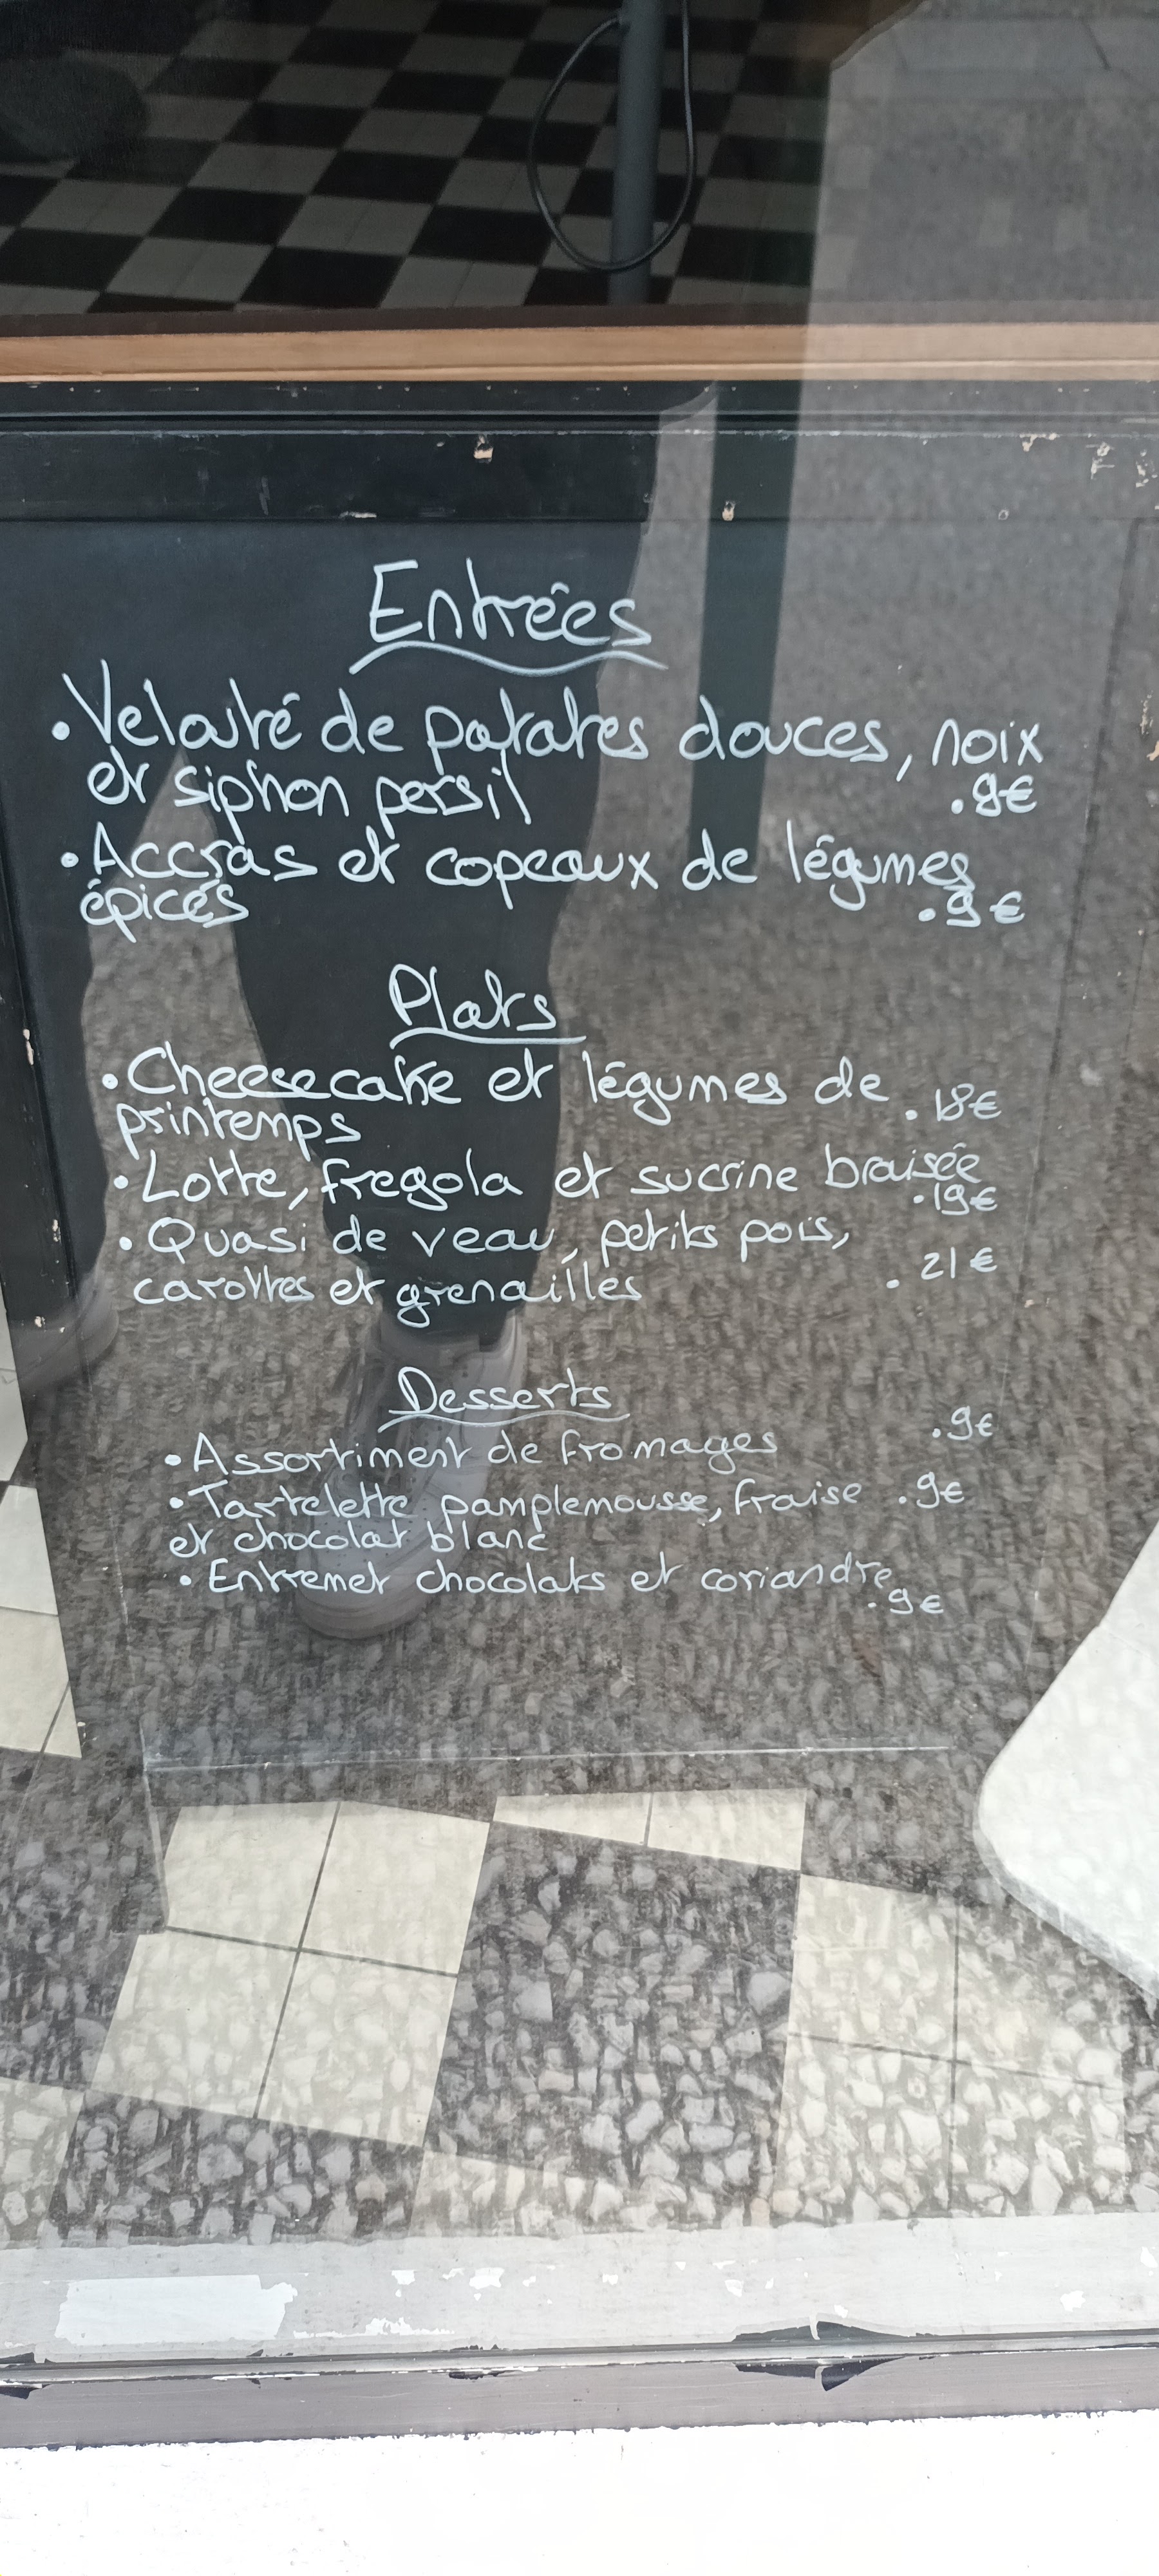 Entrées
• Velouté de patates douces, noix
et siphon persil .9€
• Accras et copeaux de légumes
épicés .9€
Plats
• Cheesecake et légumes de
printemps .18€
• Lotte, fregola et sucrine braisée
.19€
• Quasi de veau, petits pois,
carottes et grenailles . 21€
Desserts
• Assortiment de fromages .9€
• Tartelette pamplemousse, fraise .9€
et chocolat blanc
• Entremet chocolats et coriandre
.9€